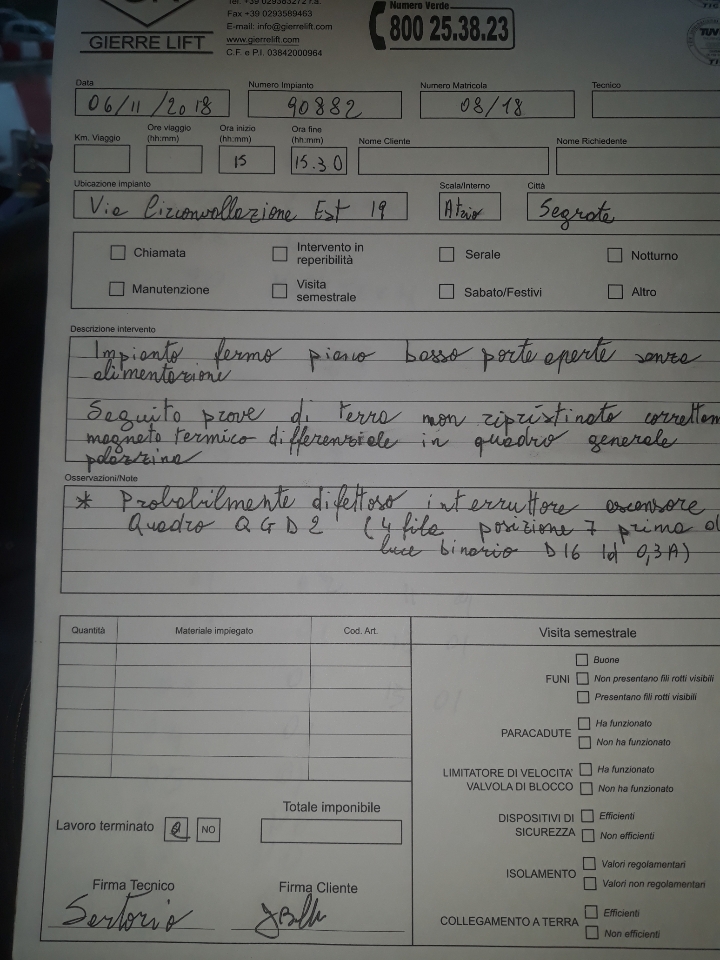 GIERRE LIFT
Fax +39 0293589463
E-mail: info@gierrelift.com
www.gierrelift.com
C.F. e P.I. 03842000964
Numero Verde
800 25.38.23
TUV
Data
Numero Impianto
Numero Matricola
Tecnico
06/11/2018
90882
08/18
Km. Viaggio
Ore viaggio
(hh:mm)
Ora inizio
(hh:mm)
Ora fine
(hh:mm)
Nome Cliente
Nome Richiedente
15
15.30
Ubicazione impianto
Scala/Interno
Città
Via Circonvallazione Est 19
Atrio
Segrate
Chiamata
Intervento in
reperibilità
Serale
Notturno
Manutenzione
Visita
semestrale
Sabato/Festivi
Altro
Descrizione intervento
Impianto fermo piano basso porte aperte senza
alimentazione
Seguito prove di terra non ripristinato correttam
magneto termico differenziale in quadro generale
palazzina
Osservazioni/Note
* Probabilmente difettoso interruttore ascensore
Quadro QGD2 (4 fila posizione 7 prima d
luce binario D16 Id 0,3A)
Quantità
Materiale impiegato
Cod. Art.
Visita semestrale
FUNI
Buone
Non presentano fili rotti visibili
Presentano fili rotti visibili
PARACADUTE
Ha funzionato
Non ha funzionato
LIMITATORE DI VELOCITA'
VALVOLA DI BLOCCO
Ha funzionato
Non ha funzionato
DISPOSITIVI DI
SICUREZZA
Efficienti
Non efficienti
ISOLAMENTO
Valori regolamentari
Valori non regolamentari
COLLEGAMENTO A TERRA
Efficienti
Non efficienti
Totale imponibile
Lavoro terminato
NO
Firma Tecnico
Firma Cliente
Sertorio